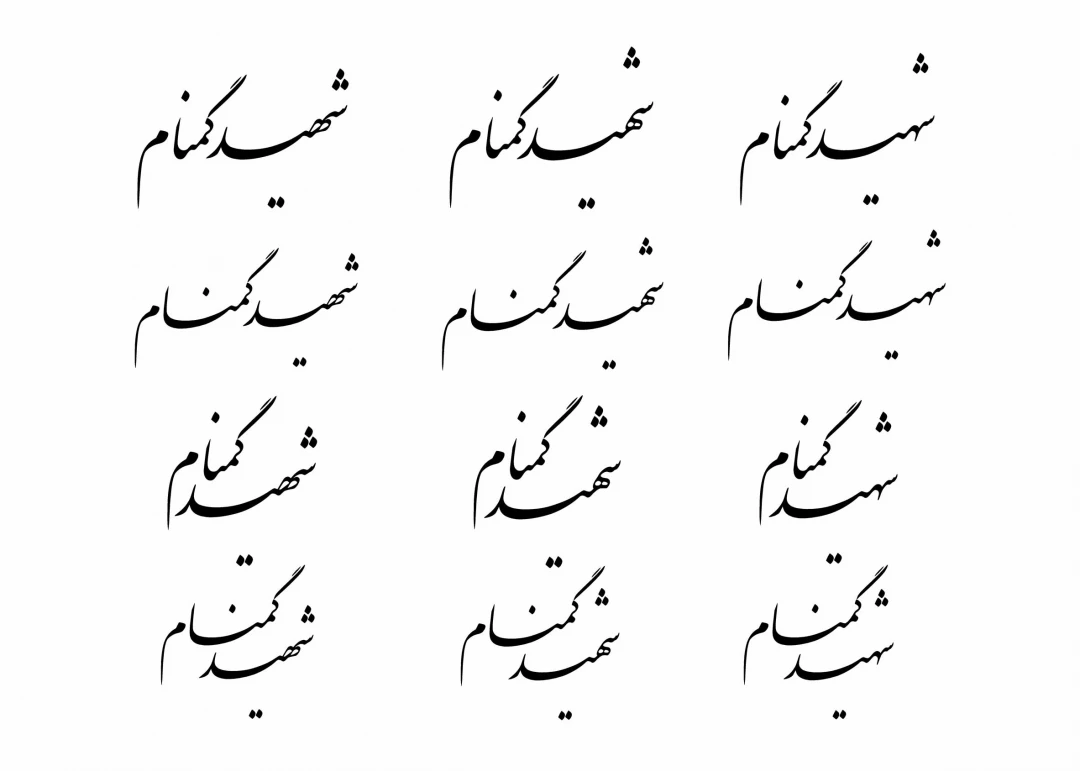 شهید گمنام شهید گمنام شهید گمنام
شهید گمنام شهید گمنام شهید گمنام
شهید گمنام شهید گمنام شهید گمنام
شهید گمنام شهید گمنام شهید گمنام